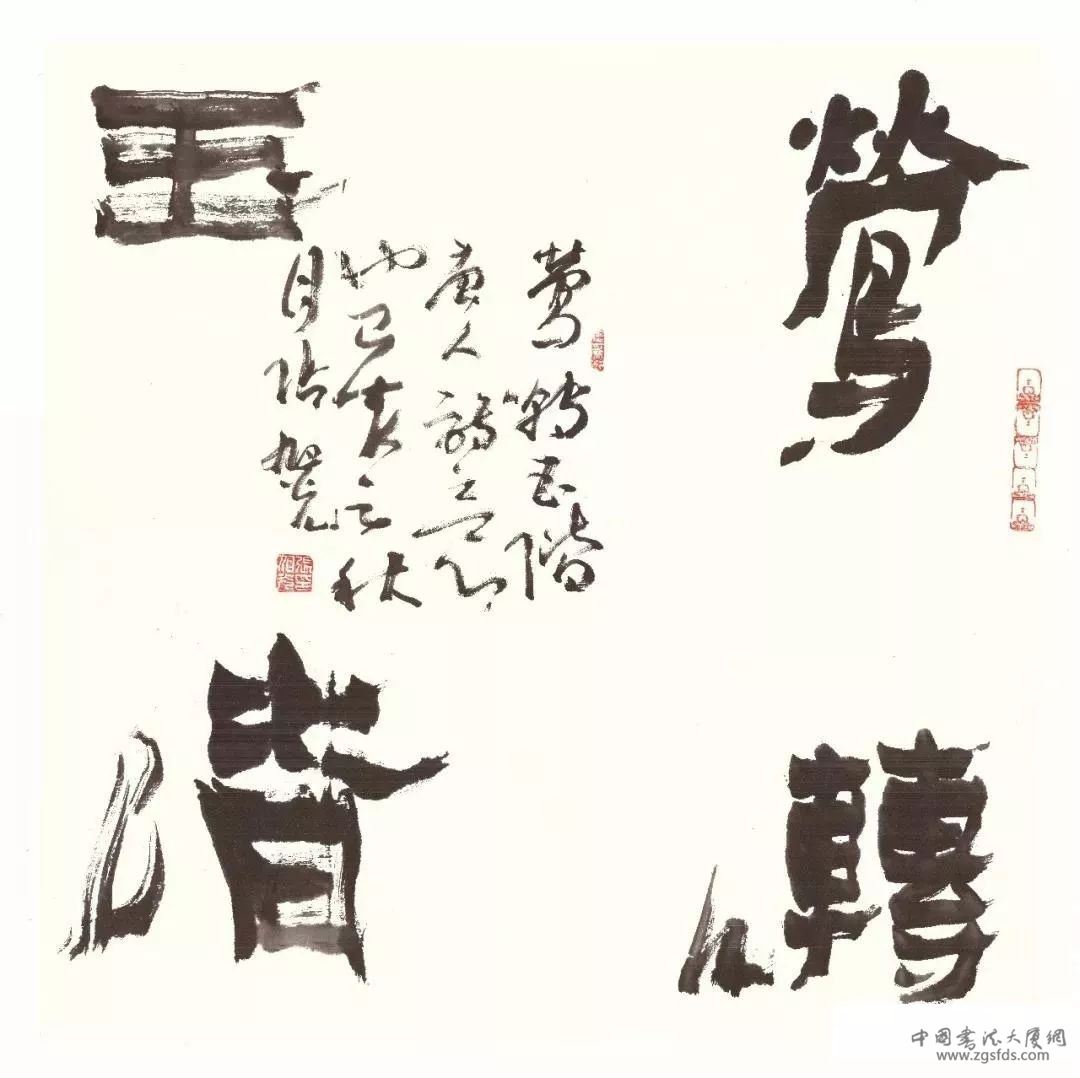 鶯囀
玉階
鶯囀玉階
唐人詩意
己亥之秋
月旭光
中國書法大廈網
www.zgsfds.com